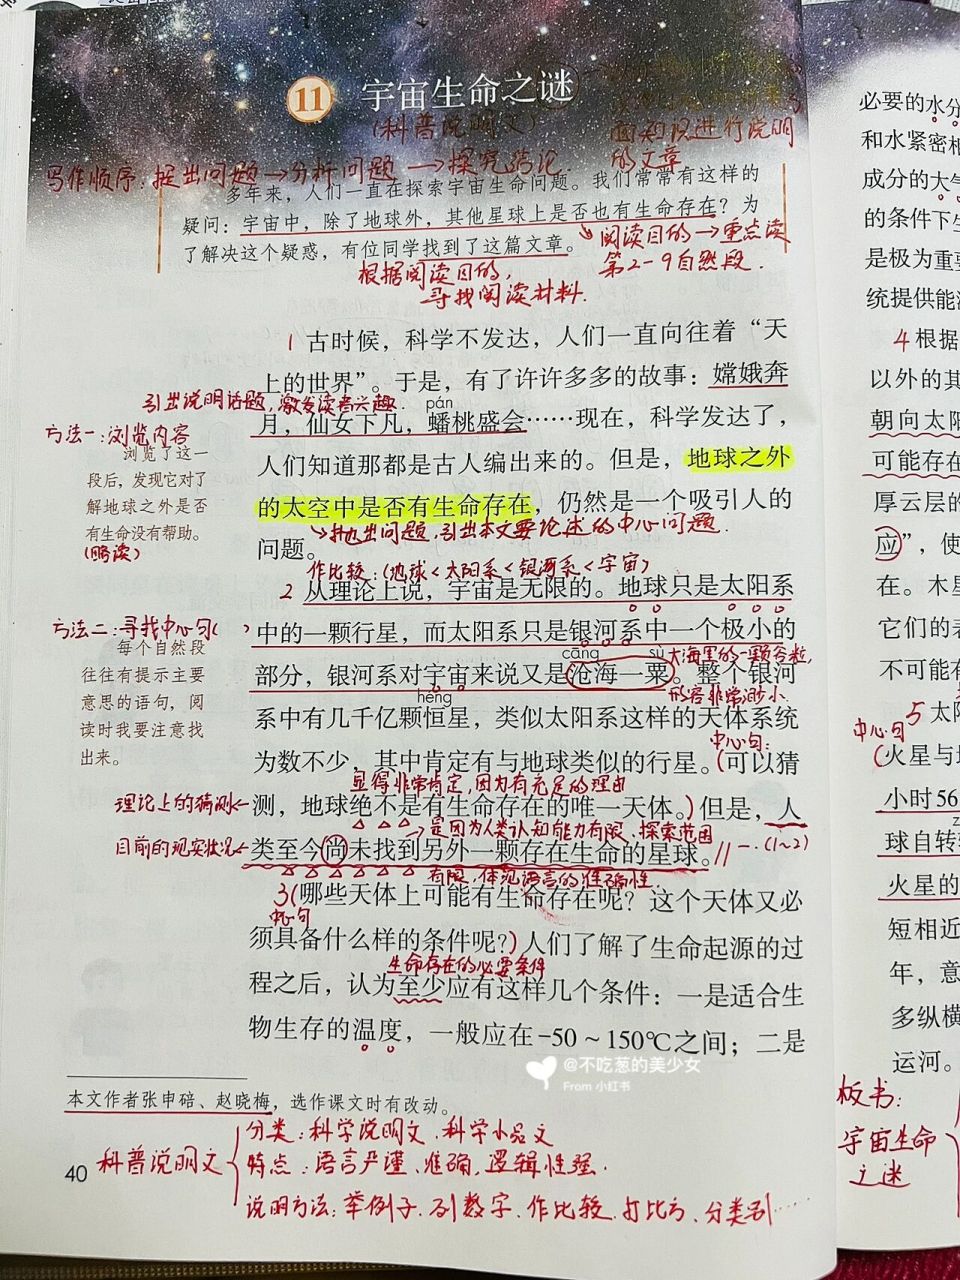 11 宇宙生命之谜
(科普说明文)
面知识进行说明
的文章
写作顺序：提出问题→分析问题→探究结论
多年来，人们一直在探索宇宙生命问题。我们常常有这样的
疑问：宇宙中，除了地球外，其他星球上是否也有生命存在？为
了解决这个疑惑，有位同学找到了这篇文章。
阅读目的→重点读
第2-9自然段.
根据阅读目的，
寻找阅读材料.
1 古时候，科学不发达，人们一直向往着“天
上的世界”。于是，有了许许多多的故事：嫦娥奔
引出说明话题，激发读者兴趣.
pán
月，仙女下凡，蟠桃盛会……现在，科学发达了，
人们知道那都是古人编出来的。但是，地球之外
的太空中是否有生命存在，仍然是一个吸引人的
→抛出问题，引出本文要论述的中心问题.
问题。
方法一：浏览内容
浏览了这一
段后，发现它对了
解地球之外是否
有生命没有帮助。
(略读)
作比较：(地球<太阳系<银河系<宇宙)
2 从理论上说，宇宙是无限的。地球只是太阳系
中的一颗行星，而太阳系只是银河系中一个极小的
cāng sù
大海里的一颗谷粒，
部分，银河系对宇宙来说又是沧海一粟。整个银河
形容非常渺小.
héng
系中有几千亿颗恒星，类似太阳系这样的天体系统
中心句：
为数不少，其中肯定有与地球类似的行星。(可以猜
显得非常肯定，因为有充足的理由
测，地球绝不是有生命存在的唯一天体。)但是，人
→是因为人类认知能力有限、探索范围
类至今尚未找到另外一颗存在生命的星球。//一.(1~2)
有限，体现语言的准确性
方法二：寻找中心句( )
每个自然段
往往有提示主要
意思的语句，阅
读时我要注意找
出来。
理论上的猜测←
目前的现实状况←
3(哪些天体上可能有生命存在呢？这个天体又必
中心句
须具备什么样的条件呢？)人们了解了生命起源的过
生命存在的必要条件
程之后，认为至少应有这样几个条件：一是适合生
物生存的温度，一般应在-50～150℃之间；二是
@不吃葱的美少女
From 小红书
本文作者张申碚、赵晓梅，选作课文时有改动。
40
科普说明文
分类：科学说明文、科学小品文
特点：语言严谨、准确、逻辑性强.
说明方法：举例子、列数字、作比较、打比方、分类别……
必要的水分
和水紧密相
成分的大气
的条件下生
是极为重要
统提供能
4 根据
以外的其
朝向太阳
可能存在
厚云层的
应”，使
在。木星
它们的表
不可能有
5 太阳
中心句
(火星与地
小时56
球自转
火星的
短相近
年，意
多纵横
运河。
板书：
宇宙生命
之迷